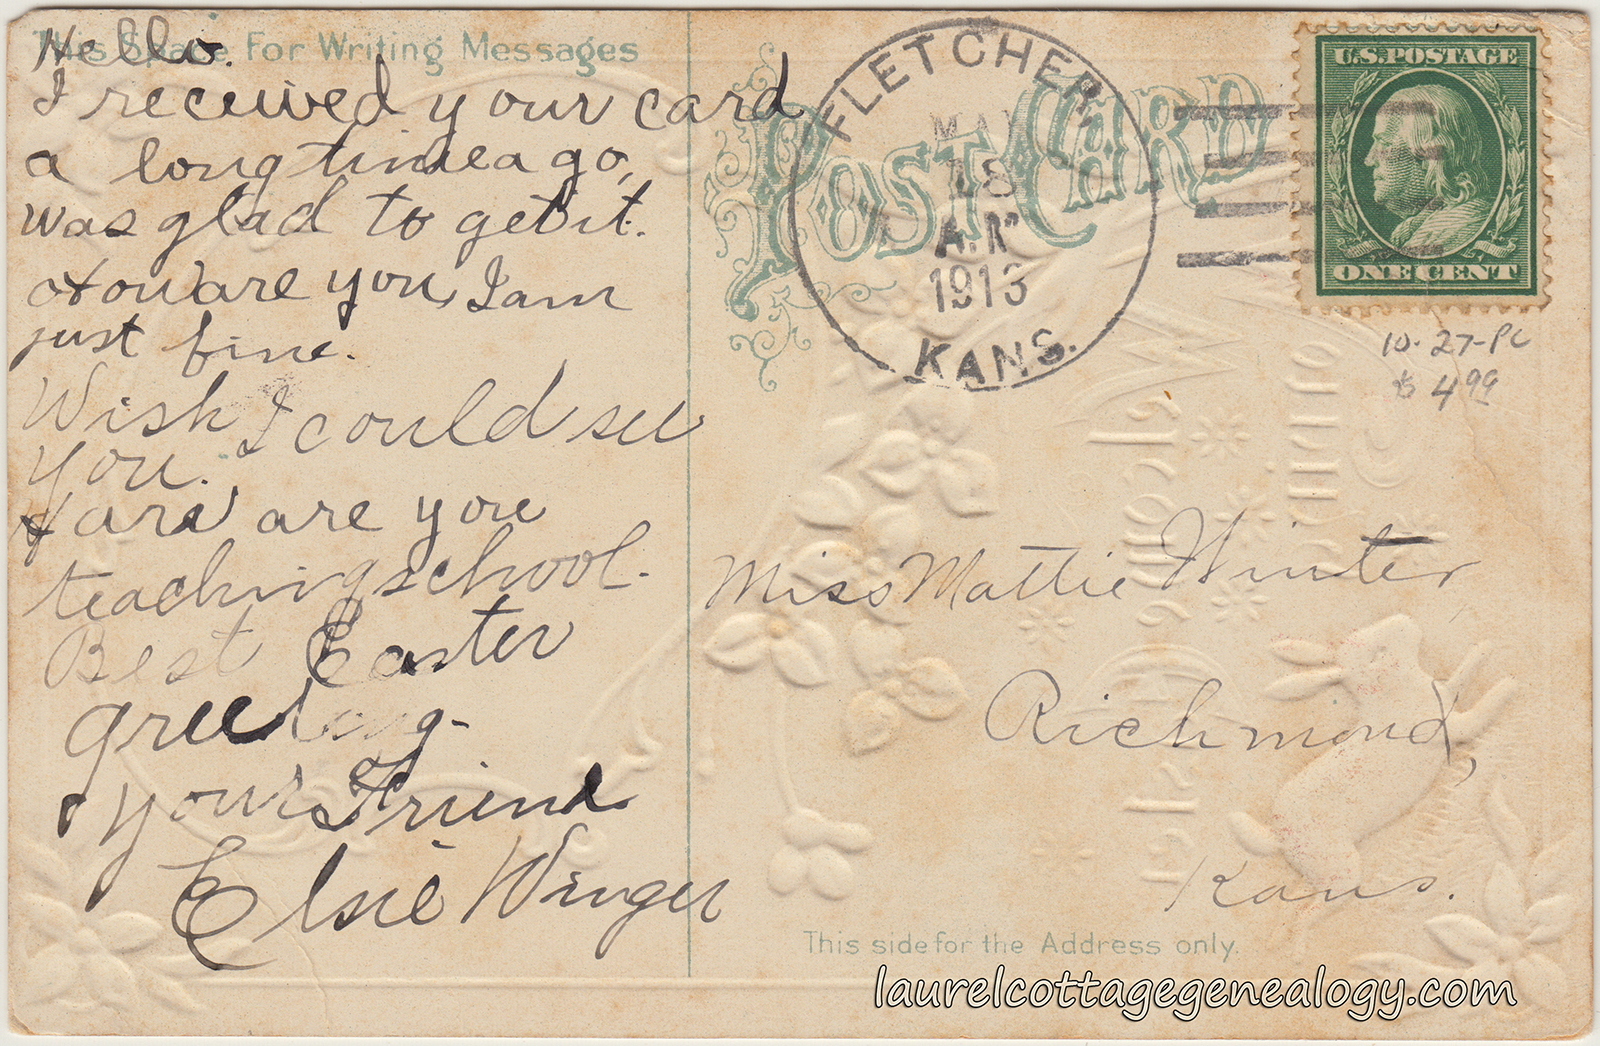 This Space For Writing Messages
Hello.
I received your card
a long time a go,
was glad to get it.
How are you, I am
just fine.
Wish I could see
you.
are you
teaching school.
Best Easter
greeting-
your Friend
Elsie Winger
POST CARD
FLETCHER,
MAR
18
A.M
1913
KANS.
U.S. POSTAGE
ONE CENT
10-27-PC
$4.99
Miss Mattie Winter,
Richmond,
Kans.
This side for the Address only.
laurelcottagegenealogy.com